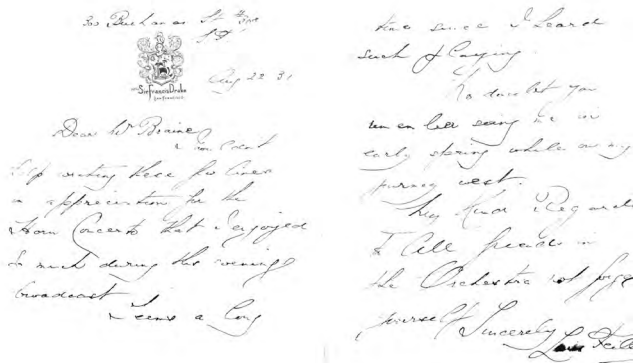 300 Buchanan St
SF
Sir Francis Drake
San Francisco
Aug 22 31
Dear Mr Braine
I can't
help writing these few lines
in appreciation for the
Horn Concerto that I enjoyed
so much during this evening
broadcast.
Seems a long
time since I heard
such playing.
No doubt you
remember seeing me in
early spring while on my
journey west.
My Kind Regards
to all friends in
the Orchestra not forge
yourself
Sincerely